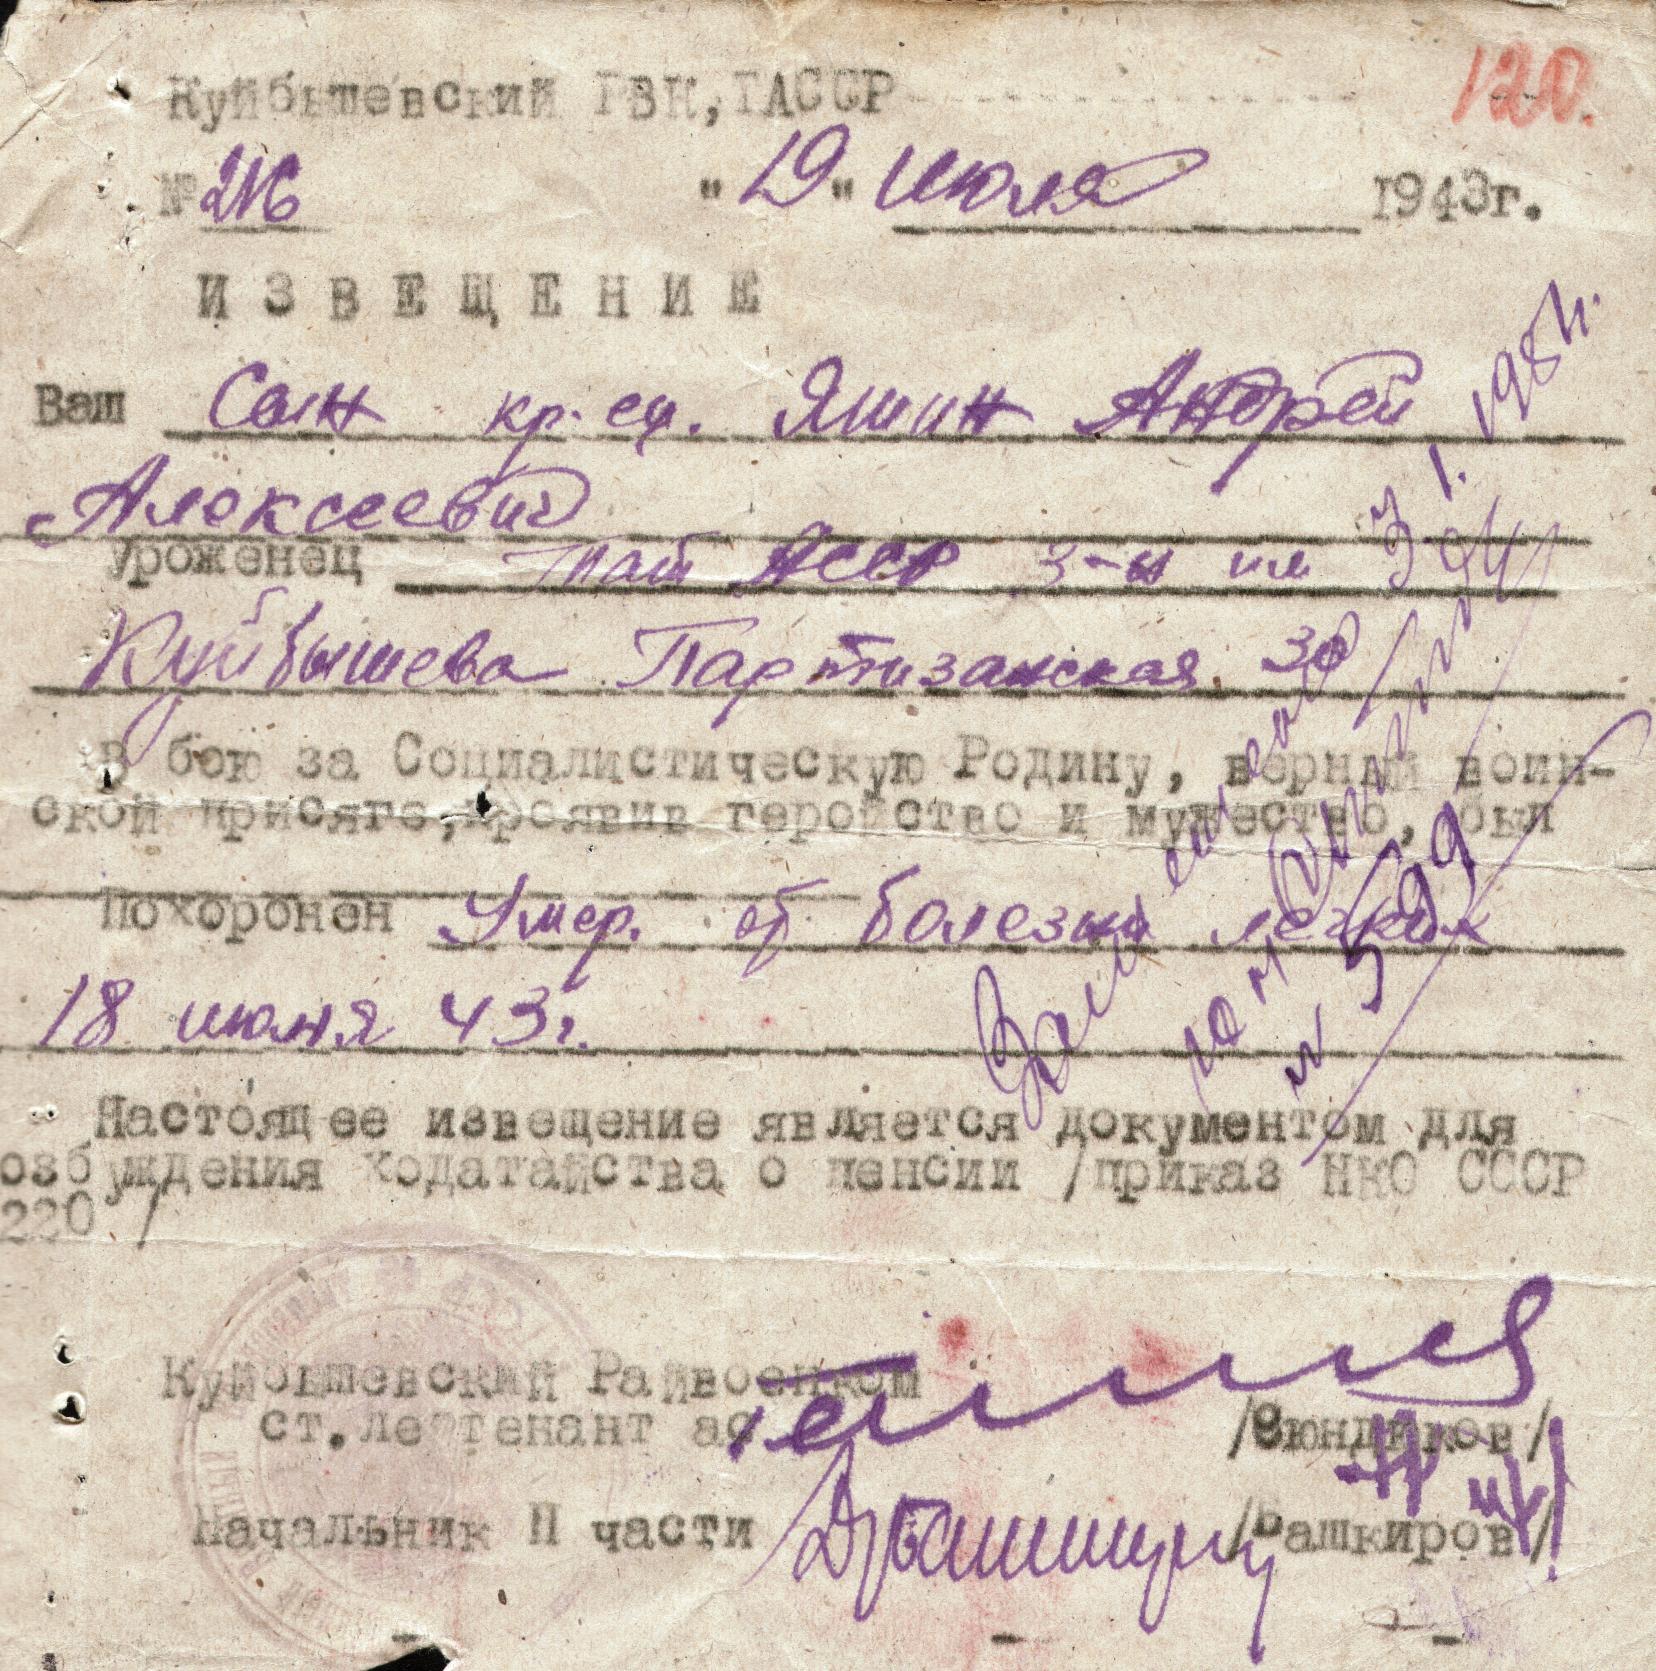 Куйбышевский РВК, ТАССР
120.
№ 216 "19" июля 1943г.
ИЗВЕЩЕНИЕ
Ваш Сын кр-ец. Яшин Андрей
Алексеевич
уроженец Тат АССР з-н им
Куйбышева Партизанская 30
В бою за Социалистическую Родину, верный воин-
ской присяге, проявив геройство и мужество, был
Похоронен Умер. от болезни легких
18 июня 43г.
Настоящее извещение является документом для
озбуждения ходатайства о пенсии /приказ НКО СССР
220 /
Куйбышевский Райвоенком
ст. лейтенант ас /Сюндюков/
Начальник II части /Башкиров/